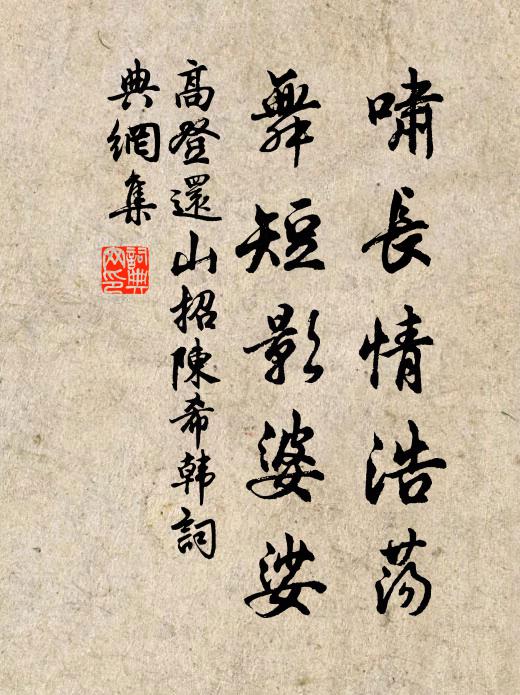 嘯長情浩蕩
舞短影婆娑
高登還山招陳希韩詞
典網集
詞典